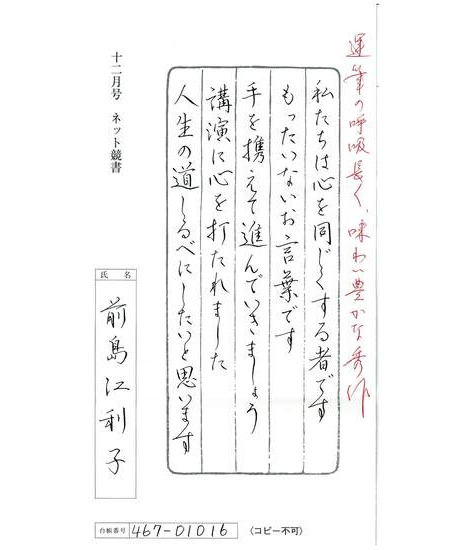 運筆の呼吸長く、味わい豊かな秀作
私たちは心を同じくする者です
もったいないお言葉です
手を携えて進んでいきましょう
講演に心を打たれました
人生の道しるべにしたいと思います
十二月号 ネット競書
氏名
前島江利子
台帳番号 467-01016
〈コピー不可〉